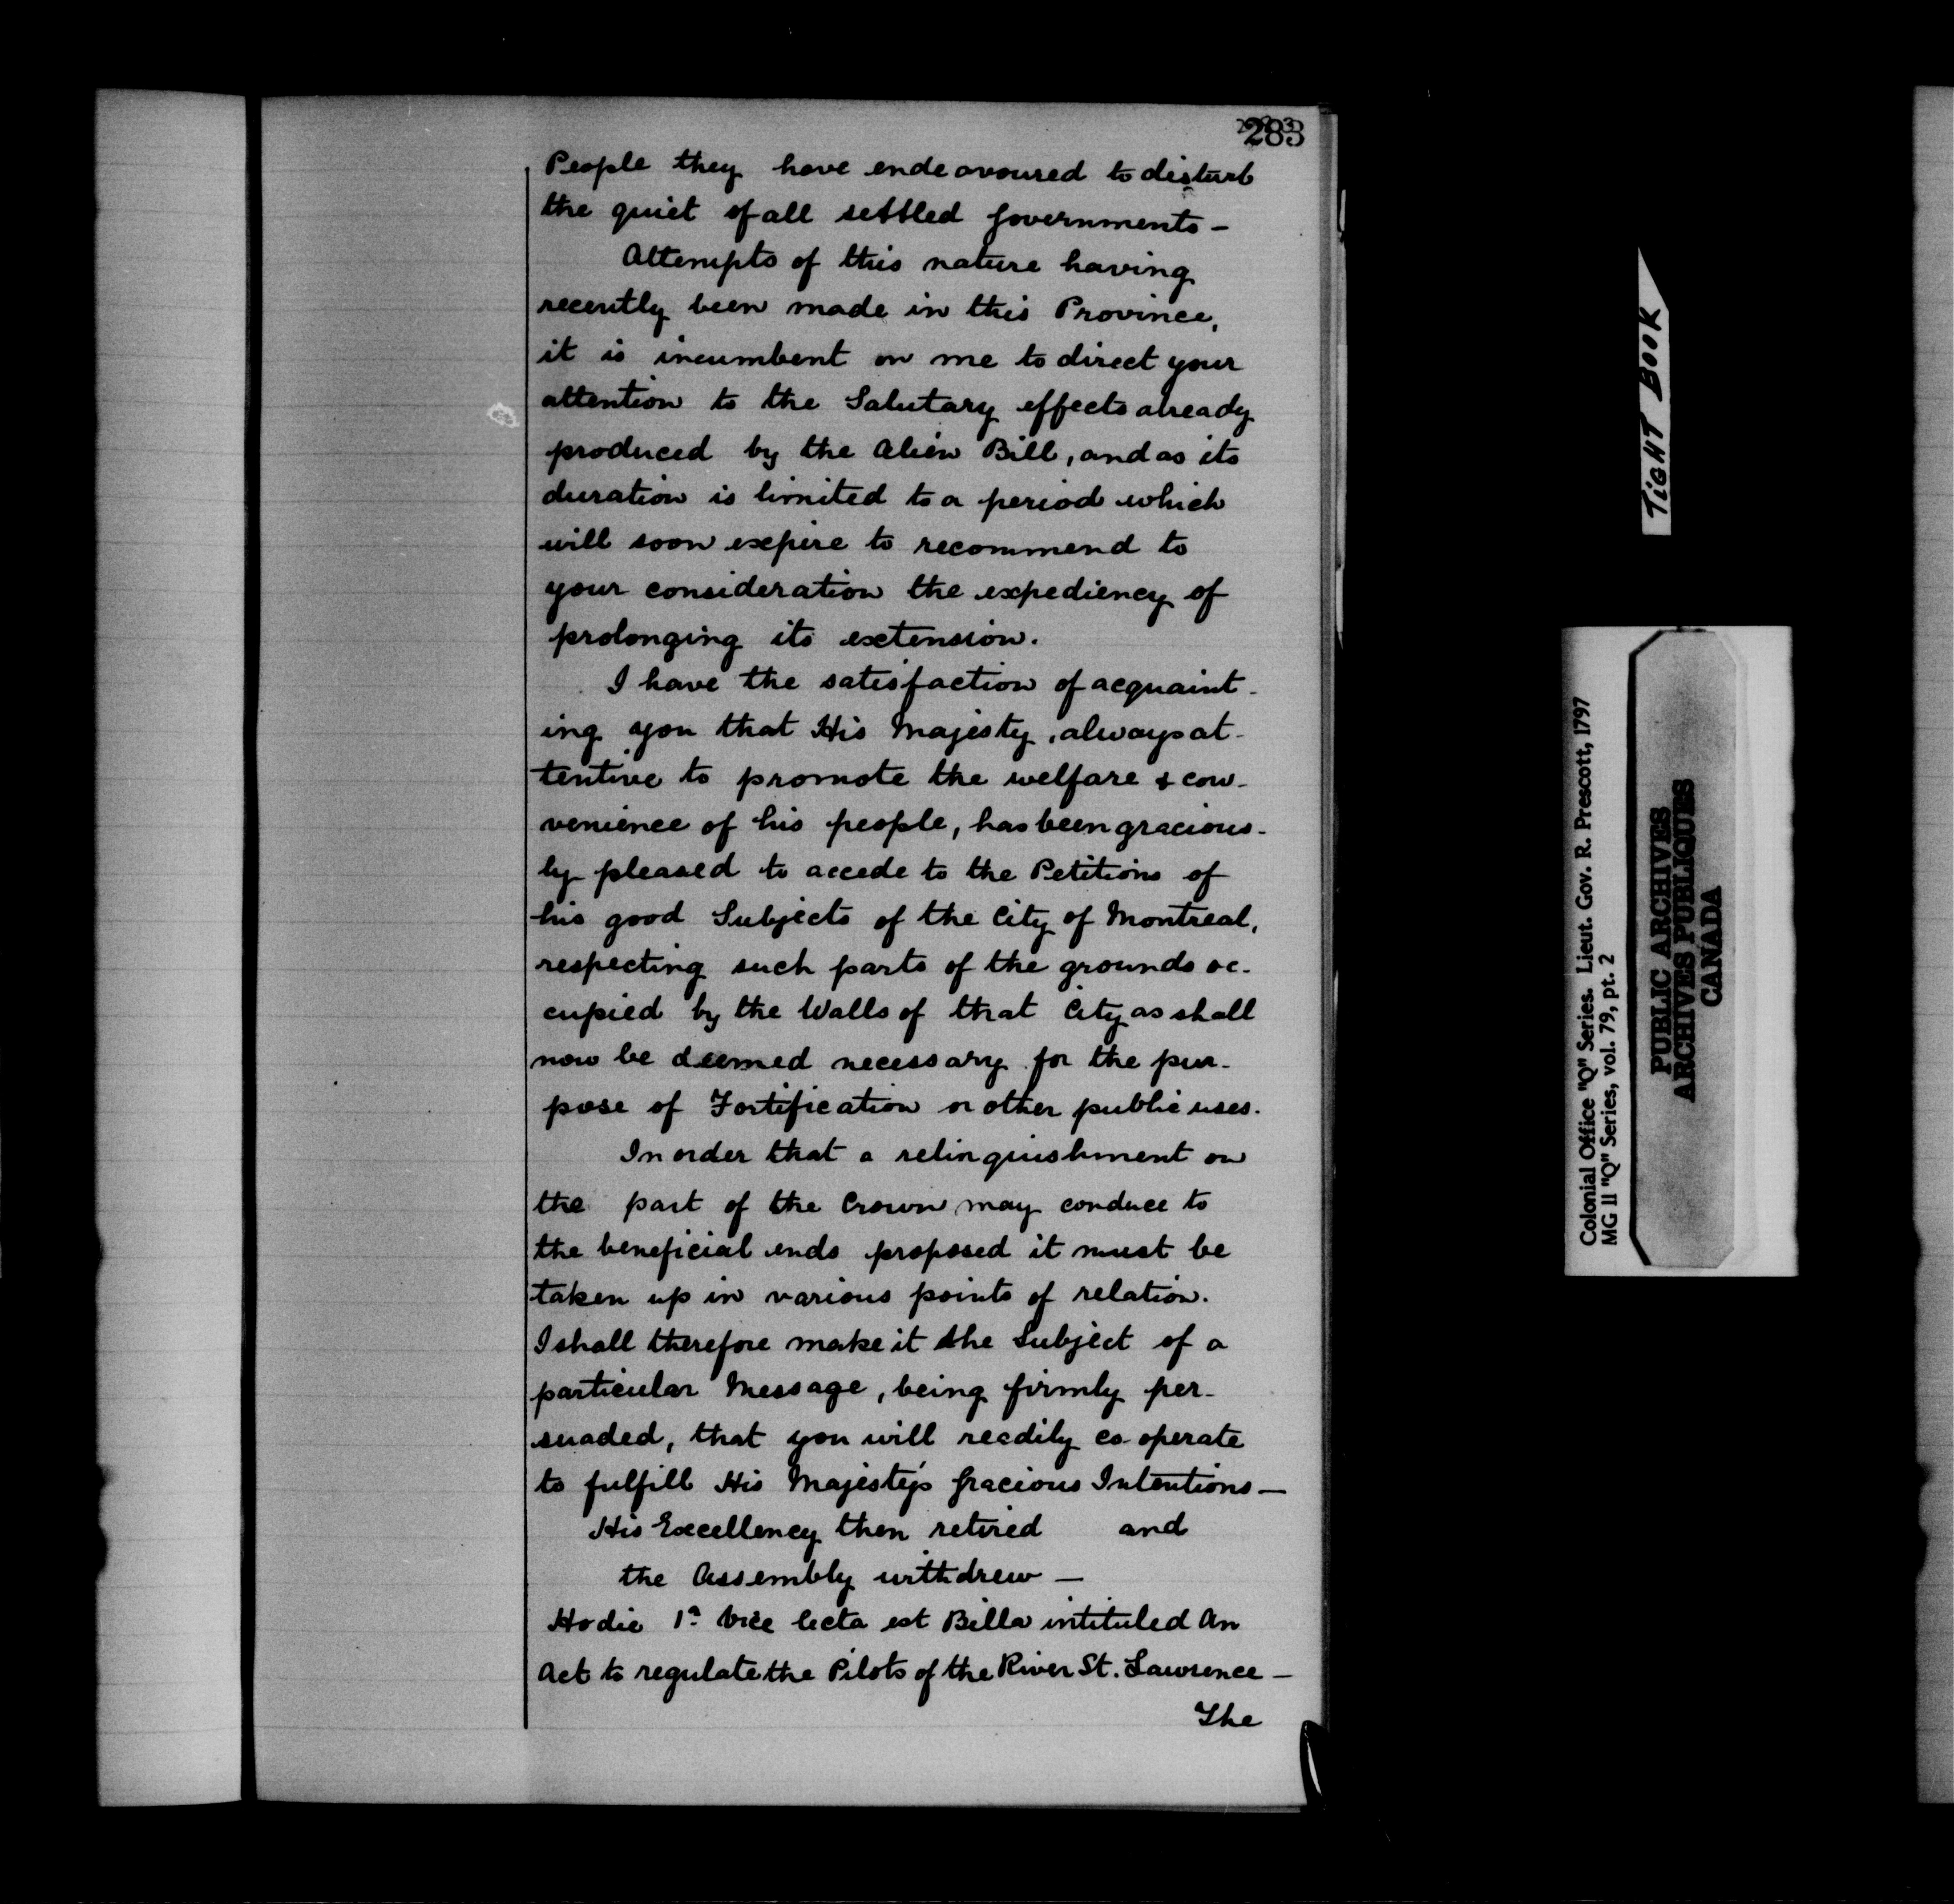 283
People they have endeavoured to disturb
the quiet of all settled Governments –
Attempts of this nature having
recently been made in this Province,
it is incumbent on me to direct your
attention to the Salutary effects already
produced by the Alien Bill, and as its
duration is limited to a period which
will soon expire to recommend to
your consideration the expediency of
prolonging its extension.
I have the satisfaction of acquaint-
ing you that His Majesty, always at-
tentive to promote the welfare & con-
venience of his people, has been gracious-
ly pleased to accede to the Petitions of
his good Subjects of the City of Montreal,
respecting such parts of the grounds oc-
cupied by the Walls of that City as shall
now be deemed necessary for the pur-
pose of Fortification or other public uses.
In order that a relinquishment on
the part of the Crown may conduce to
the beneficial ends proposed it must be
taken up in various points of relation.
I shall therefore make it the Subject of a
particular Message, being firmly per-
suaded, that you will readily co-operate
to fulfill His Majesty's Gracious Intentions –
His Excellency then retired and
the Assembly withdrew –
Hodie 1a Vice lecta est Billa intituled An
Act to regulate the Pilots of the River St. Lawrence –
The
TIGHT BOOK
Colonial Office "Q" Series. Lieut. Gov. R. Prescott, 1797
MG 11 "Q" Series, vol. 79, pt. 2
PUBLIC ARCHIVES
ARCHIVES PUBLIQUES
CANADA